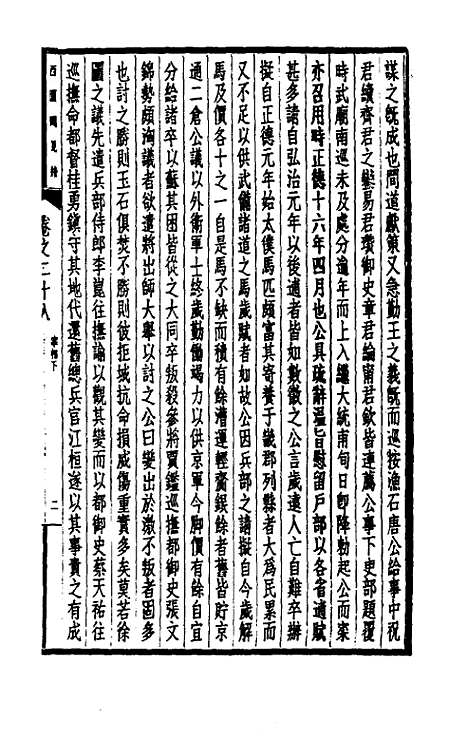 謀之旣成也間道獻頌又急勤王之義旣而巡按漁石唐公給事中祝
君續齊君之鸞易君瓚御史章君綸甯君欽皆連薦公事下吏部題覆
時武廟南巡未及處分逾年而上入繼大統甫旬日卽降勅起公而寀
亦召用時正德十六年四月也公具疏辭溫旨慰留戶部以各省逋賦
甚多請自弘治元年以後逋者皆如數徵之公言歲遠人亡自難卒辦
擬自正德元年始太僕馬匹頗富其寄養于畿郡列縣者大爲民累而
又不足以供武備諸道之馬歲賦者如故公因兵部之請擬自今歲解
馬及價各十之一自是馬不缺而積有餘漕運輕齎銀餘者舊皆貯京
通二倉公議以外衛軍士終歲勤働竭力以供京軍今脚價有餘自宜
分給諸卒以蘇其困皆從之大同卒叛殺參將賈鑑巡撫都御史張文
錦勢頗洶議者欲遣將出師大舉以討之公曰變出於激不叛者固多
也討之勝則玉石俱焚不勝則彼拒城抗命損威傷重實多矣莫若徐
圖之議先遣兵部侍郎李崑往撫諭以觀其變而以都御史蔡天祐往
巡撫命都督桂勇鎭守其地代還舊總兵官江桓遂以其事責之有成
西園聞見錄
卷之二十八
宰相下
二